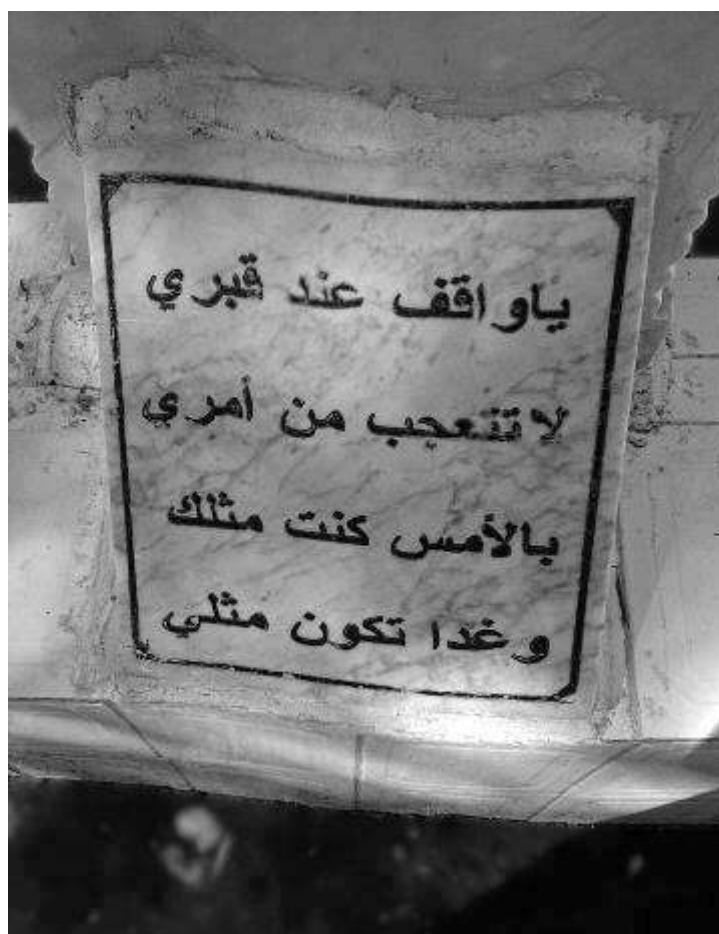 ياواقف عند قبري
لاتتعجب من أمري
بالأمس كنت مثلك
وغدا تكون مثلي